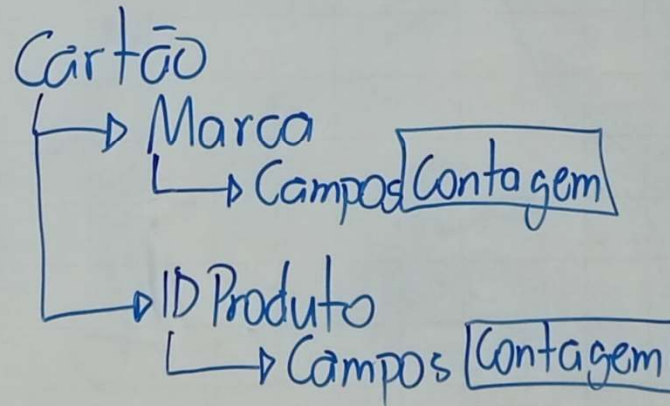 Cartão
Marca
Campos Contagem
ID Produto
Campos Contagem